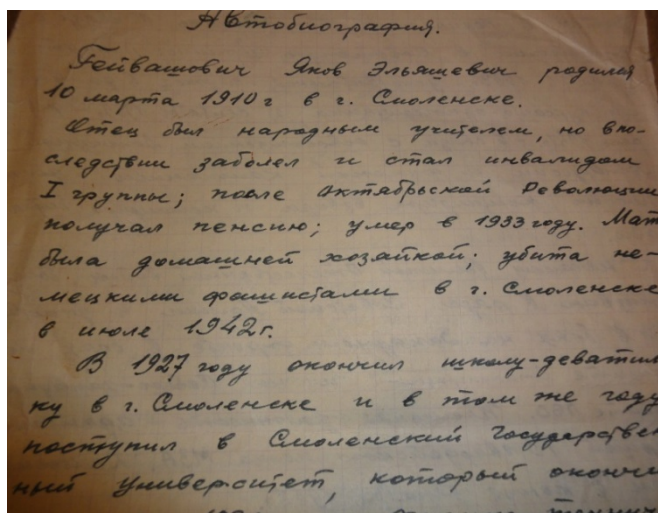 Автобиография.
Гейвашович Яков Эльяшевич родился
10 марта 1910 г в г. Смоленске.
Отец был народным учителем, но впо-
следствии заболел и стал инвалидом
I группы; после Октябрьской Революции
получал пенсию; умер в 1933 году. Мат
была домашней хозяйкой; убита не-
мецкими фашистами в г. Смоленске
в июле 1942 г.
В 1927 году окончил школу-девятил
ку в г. Смоленске и в том же году
поступил в Смоленский Государствен
ный университет, который окончи